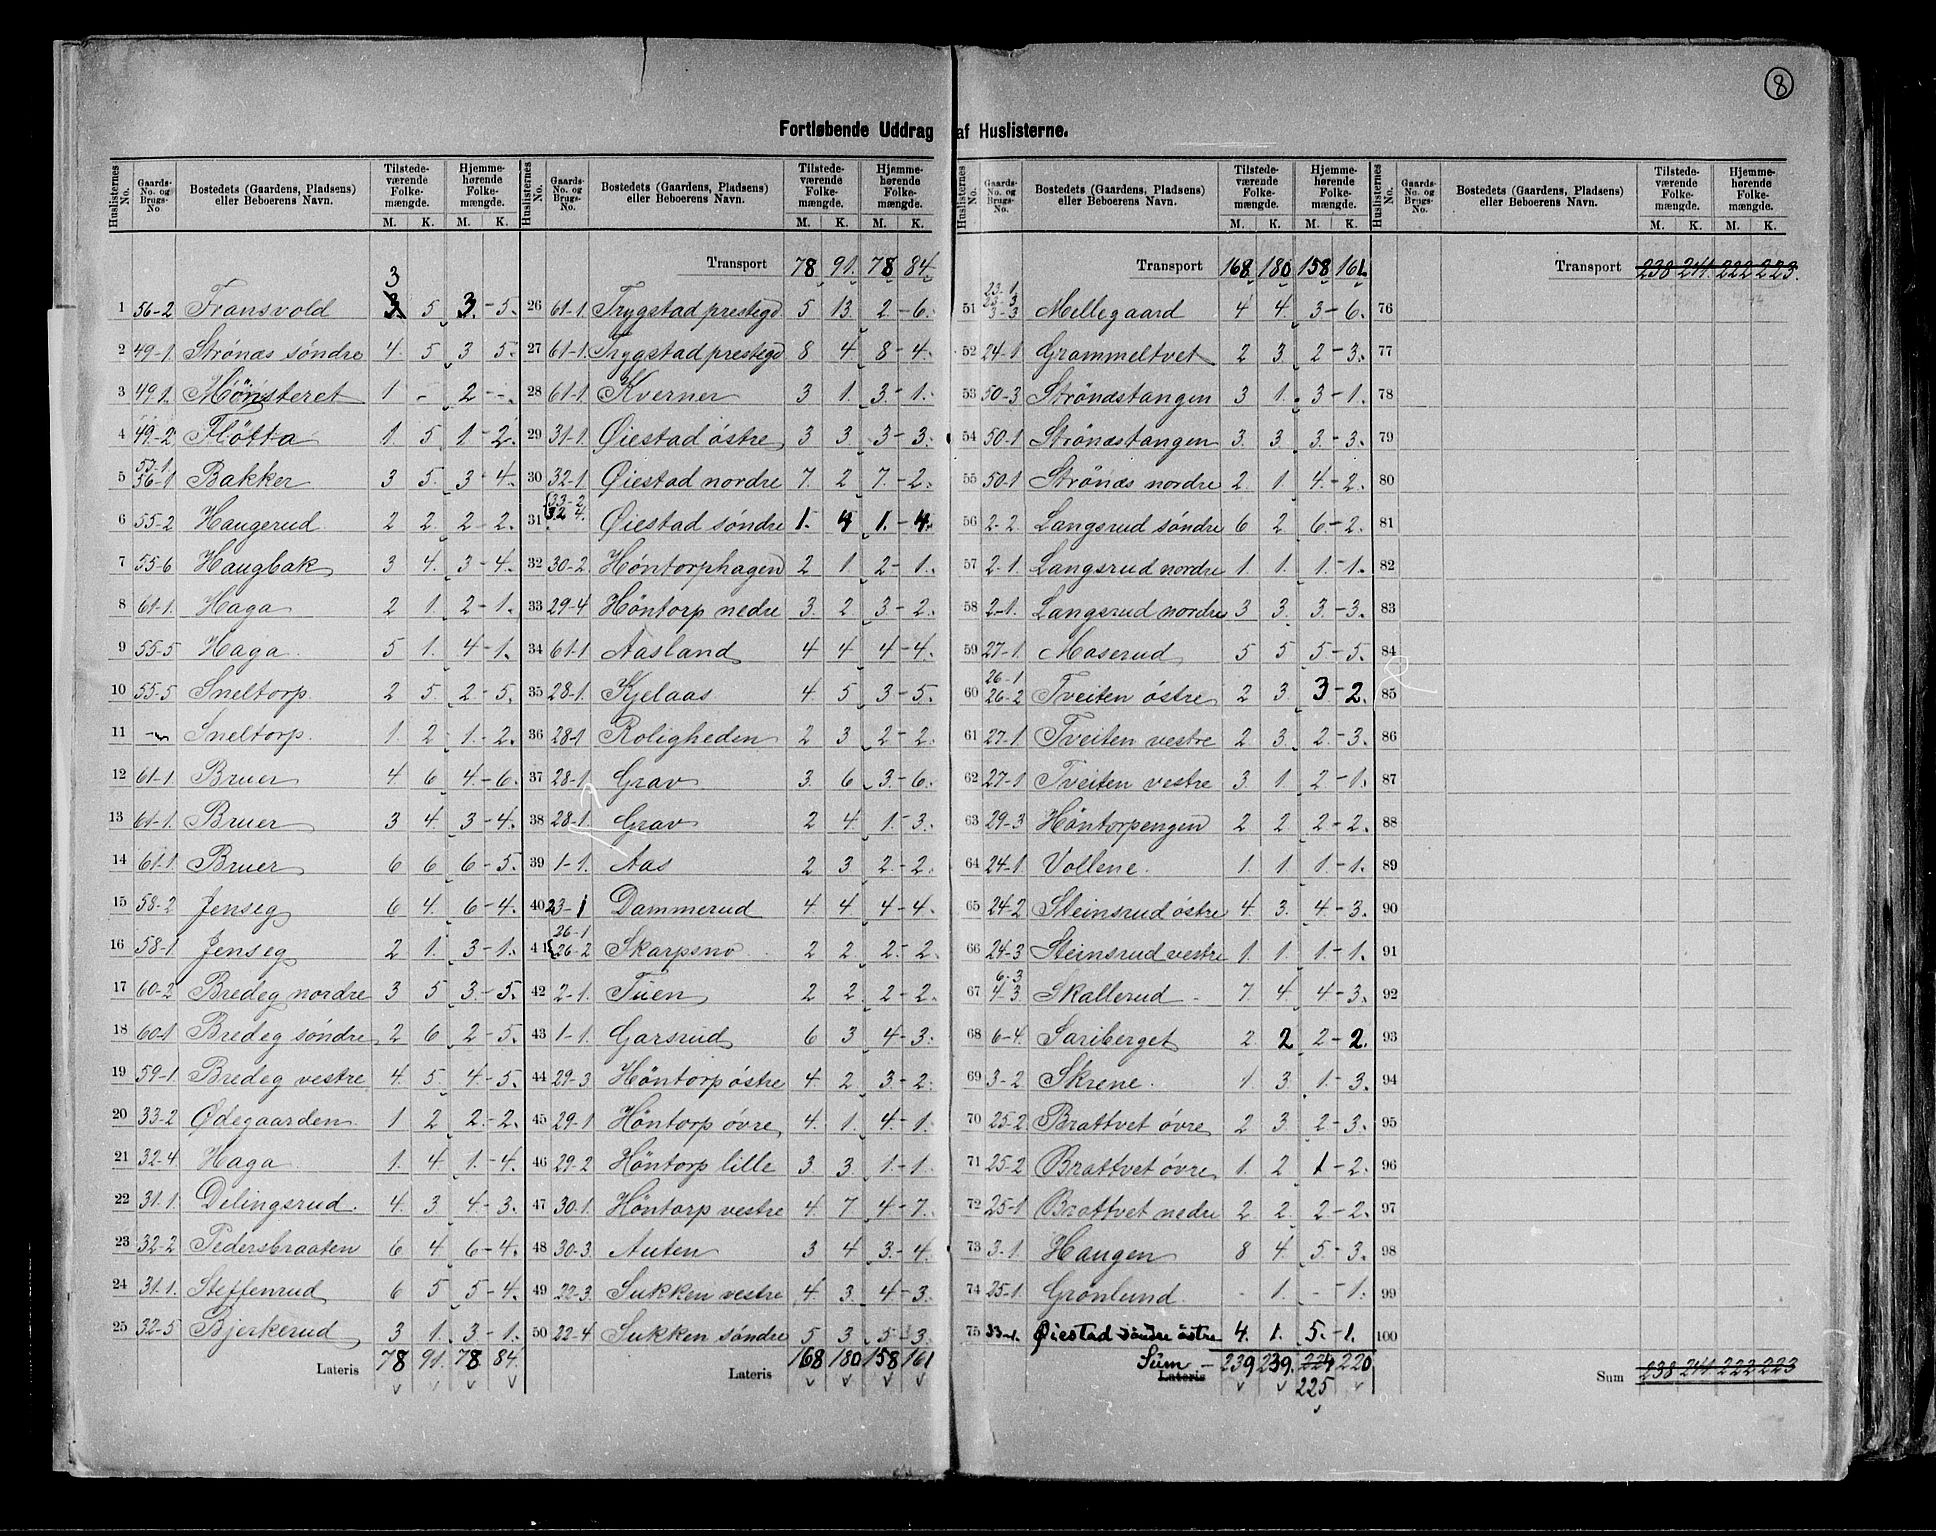 8
Fortløbende Uddrag af Huslisterne.
Huslisternes No. Gaards-No. og Brugs-No. Bostedets (Gaardens, Pladsens) eller Beboerens Navn. Tilstedeværende Folkemængde. M. K. Hjemmehørende Folkemængde. M. K.
3
1 56-2 Fransvold 3 5 3 - 5.
2 49-1. Strönæs söndre 4. 5 3 5.
3 49.1. Mönsteret 1 - 2 - -.
4 49.-2 Flötta 1. 5 1 - 2.
53-1.
5 56-1 Bakker 3 5. 3 - 4.
6 55-2 Haugerud. 2 2. 2 - 2.
7 55-6 Haugbak 3 4. 3 - 4.
8 61-1. Haga 2 1. 2 - 1.
9 55-5 Haga. 5 1. 4 - 1.
10 55-5 Sneltorp. 2 5. 2 - 5.
11 - Sneltorp. 1. 2 1. - 2.
12 61-1 Bruer 4 6 4 - 6.
13 61-1. Bruer 3 4. 3 - 4.
14 61-1 Bruer 6 6 6 - 5.
15 58-2 Jenseg 6 4. 6 - 4.
16 58-1 Jenseg 2 1. 3 - 1.
17 60-2 Bredeg nordre 3 5 3. - 5.
18 60-1 Bredeg söndre 2 6 2 - 5.
19 59-1. Bredeg vestre 4. 5. 4 - 5.
20 33-2 Ødegaarden. 1 2 2. - 2.
21 32-4 Haga 1. 4 1. - 4.
22 31-1. Delingsrud. 4. 3 4. - 3.
23 32-2 Pedersbraaten 6 4 6 - 4.
24 31-1. Steffenrud 6 5 5 - 4.
25 32-5 Bjerkerud 3 1. 3 - 1.
Lateris 78 91. 78 84.
Huslisternes No. Gaards-No. og Brugs-No. Bostedets (Gaardens, Pladsens) eller Beboerens Navn. Tilstedeværende Folkemængde. M. K. Hjemmehørende Folkemængde. M. K.
Transport 78 91. 78 84.
26 61-1. Trygstad prestegd 5 13. 2 - 6.
27 61-1. Trygstad prestegd 8 4 8 - 4.
28 61-1. Kverner 3 1. 3. - 1.
29 31-1. Øiestad östre 3 3. 3 - 3.
30 32-1. Øiestad nordre 7. 2 7. - 2.
33-2
31 32 4. Øiestad söndre 1. 4 1. - 4.
32 30-2. Höntorphagen 2 1. 2 - 1.
33 29-4 Höntorp nedre 3. 2 3 - 2.
34 61-1 Aasland 4 4 4 - 4.
35 28-1. Kjelaas 4. 5 3 - 5.
36 28-1 Roligheden 2 3 2 - 2.
37 28-1. Grav 3. 6 3. - 6.
38 28-1. Grav 2 4 1. - 3.
39 1-1. Aas 2 3 2. - 2.
40 23-1 Dammerud 4 4 4 - 4.
26-1
41 26-2 Skarpsno 2 2 2. - 2.
42 2-1. Tuen 2 2. 2 - 2.
43 1-1. Garsrud 6 3 4 - 3.
44 29-3 Höntorp östre 4. 2 3 - 2.
45 29-1 Höntorp övre 4. 1. 4. - 1.
46 29-2 Höntorp lille 3. 3. 1. - 1.
47 30-1. Höntorp vestre 4. 7 4 - 7.
48 30-3. Auten 3 4 3. - 4.
49 22-3. Sukken vestre 4. 3. 4 - 3.
50 22-4 Sukken söndre 5 3 5 - 3.
Lateris 168 180 158 161
Huslisternes No. Gaards-No. og Brugs-No. Bostedets (Gaardens, Pladsens) eller Beboerens Navn. Tilstedeværende Folkemængde. M. K. Hjemmehørende Folkemængde. M. K.
Transport 168 180 158 161.
23-1
23-3
51 3-3 Mellegaard 4 4. 3 - 6.
52 24-1 Grammeltvet 2 3 2 - 3.
53 50-3 Strönæstangen 3 1. 3 - 1.
54 50-1 Strönæstangen 3. 3. 3. - 3.
55 50-1 Strönæs nordre 2. 1. 4. - 2.
56 2-2. Langsrud söndre 6 2 6 - 2.
57 2-1. Langsrud nordre 1. 1. 1. - 1.
58 2-1. Langsrud nordre 3 3. 3. - 3.
59 27-1. Moserud 5 5 5 - 5.
26-1
60 26-2 Tveiten östre 2 3. 3 - 2.
61 27-1. Tveiten vestre 2 3. 2. - 3.
62 27-1 Tveiten vestre 3. 1 2 - 1.
63 29-3 Höntorpengen 2 2. 2 - 2.
64 24-1. Vollene. 1. 1. 1. - 1.
65 24-2 Steinsrud östre 4. 3. 4. - 3.
66 24-3 Steinsrud vestre 1. 1. 1. - 1.
6-3
67 4-3. Skallerud 7. 4 4 - 3.
68 6-4. Sariberget 2. 2 2 - 2.
69 3-2 Skrene. 1. 3 1. - 3.
70 25-2 Brattvet övre 2 3. 2 - 3.
71 25-2 Brattvet övre 1. 2 1 - 2.
72 25-1 Brattvet nedre 2 2. 2 - 2.
73 3-1. Haugen 8 4. 5. - 3.
74 25-1. Grönlund. - 1. - - 1.
75 33-1. Øiestad söndre östre 4. 1. 5. - 1.
Sum Lateris 239 239. 224 220
225
Huslisternes No. Gaards-No. og Brugs-No. Bostedets (Gaardens, Pladsens) eller Beboerens Navn. Tilstedeværende Folkemængde. M. K. Hjemmehørende Folkemængde. M. K.
Transport 238 241. 222 223.
76
77
78
79
80
81
82
83
84
85
86
87
88
89
90
91
92
93
94
95
96
97
98
99
100
Sum 238 241. 222 223